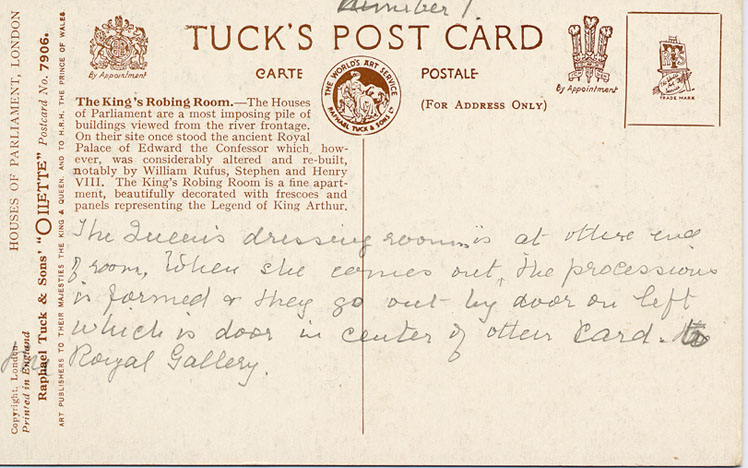 Number 1.
TUCK'S POST CARD
By Appointment
CARTE
POSTALE
THE WORLD'S ART SERVICE
RAPHAEL TUCK & SONS LTD
(FOR ADDRESS ONLY)
By Appointment
TRADE MARK
The King's Robing Room.—The Houses
of Parliament are a most imposing pile of
buildings viewed from the river frontage.
On their site once stood the ancient Royal
Palace of Edward the Confessor which, how-
ever, was considerably altered and re-built,
notably by William Rufus, Stephen and Henry
VIII. The King's Robing Room is a fine apart-
ment, beautifully decorated with frescoes and
panels representing the Legend of King Arthur.
The Queen's dressing room is at other end
of room, When she comes out, the processions
is formed & they go out by door on left
which is door in center of other card. to
Royal Gallery.
HOUSES OF PARLIAMENT, LONDON
Raphael Tuck & Sons' "OILETTE" Postcard No. 7906.
ART PUBLISHERS TO THEIR MAJESTIES THE KING & QUEEN, AND TO H.R.H. THE PRINCE OF WALES
Copyright, London
Printed in England